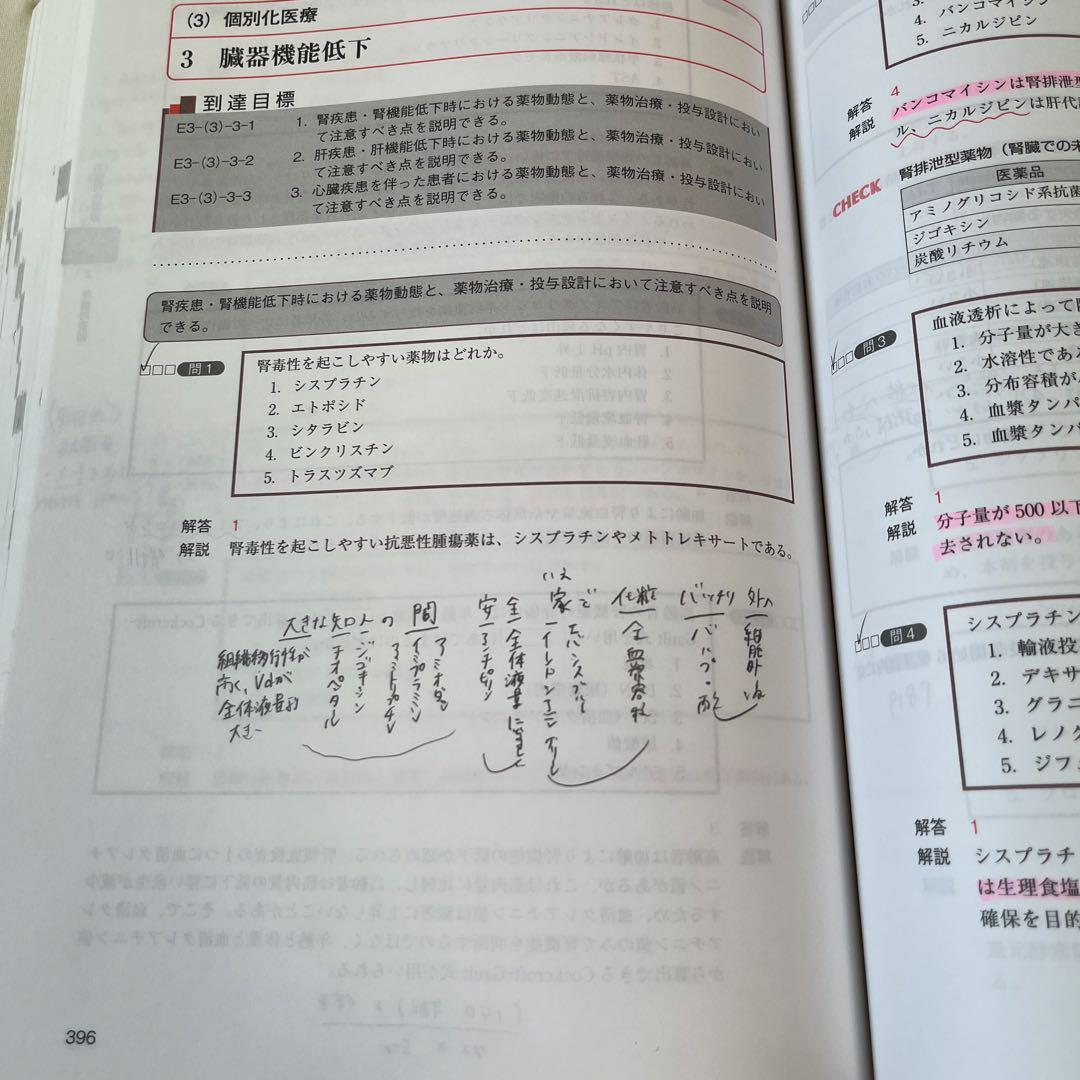 (3) 個別化医療
3 臓器機能低下
到達目標
E3-(3)-3-1 1. 腎疾患・腎機能低下時における薬物動態と、薬物治療・投与設計におい
て注意すべき点を説明できる。
E3-(3)-3-2 2. 肝疾患・肝機能低下時における薬物動態と、薬物治療・投与設計におい
て注意すべき点を説明できる。
E3-(3)-3-3 3. 心臓疾患を伴った患者における薬物動態と、薬物治療・投与設計におい
て注意すべき点を説明できる。
腎疾患・腎機能低下時における薬物動態と、薬物治療・投与設計において注意すべき点を説明
できる。
問1
腎毒性を起こしやすい薬物はどれか。
1. シスプラチン
2. エトポシド
3. シタラビン
4. ビンクリスチン
5. トラスツズマブ
解答 1
解説 腎毒性を起こしやすい抗悪性腫瘍薬は、シスプラチンやメトトレキサートである。
外へ
バッチリ
化粧
家で
いえ
安全
間
大きな知人の
細胞外液
血漿容積
全体液量に
アンチピリン
アミオダロン
イミプラミン
ジゴキシン
チオペンタール
組織移行性が
高く、Vdが
全体液量より
大きい
396
4. バンコマイシン
5. ニカルジピン
解答 4
解説 バンコマイシンは腎排泄型
ル、ニカルジピンは肝代
CHECK
腎排泄型薬物（腎臓での未
医薬品
アミノグリコシド系抗菌
ジゴキシン
炭酸リチウム
問3
血液透析によって
1. 分子量が大き
2. 水溶性であ
3. 分布容積が
4. 血漿タンパ
5. 血漿タンパ
解答 1
解説 分子量が500以下
去されない。
問4
シスプラチン
1. 輸液投
2. デキサ
3. グラニ
4. レノグ
5. ジフェ
解答 1
解説 シスプラチ
は生理食塩
確保を目的